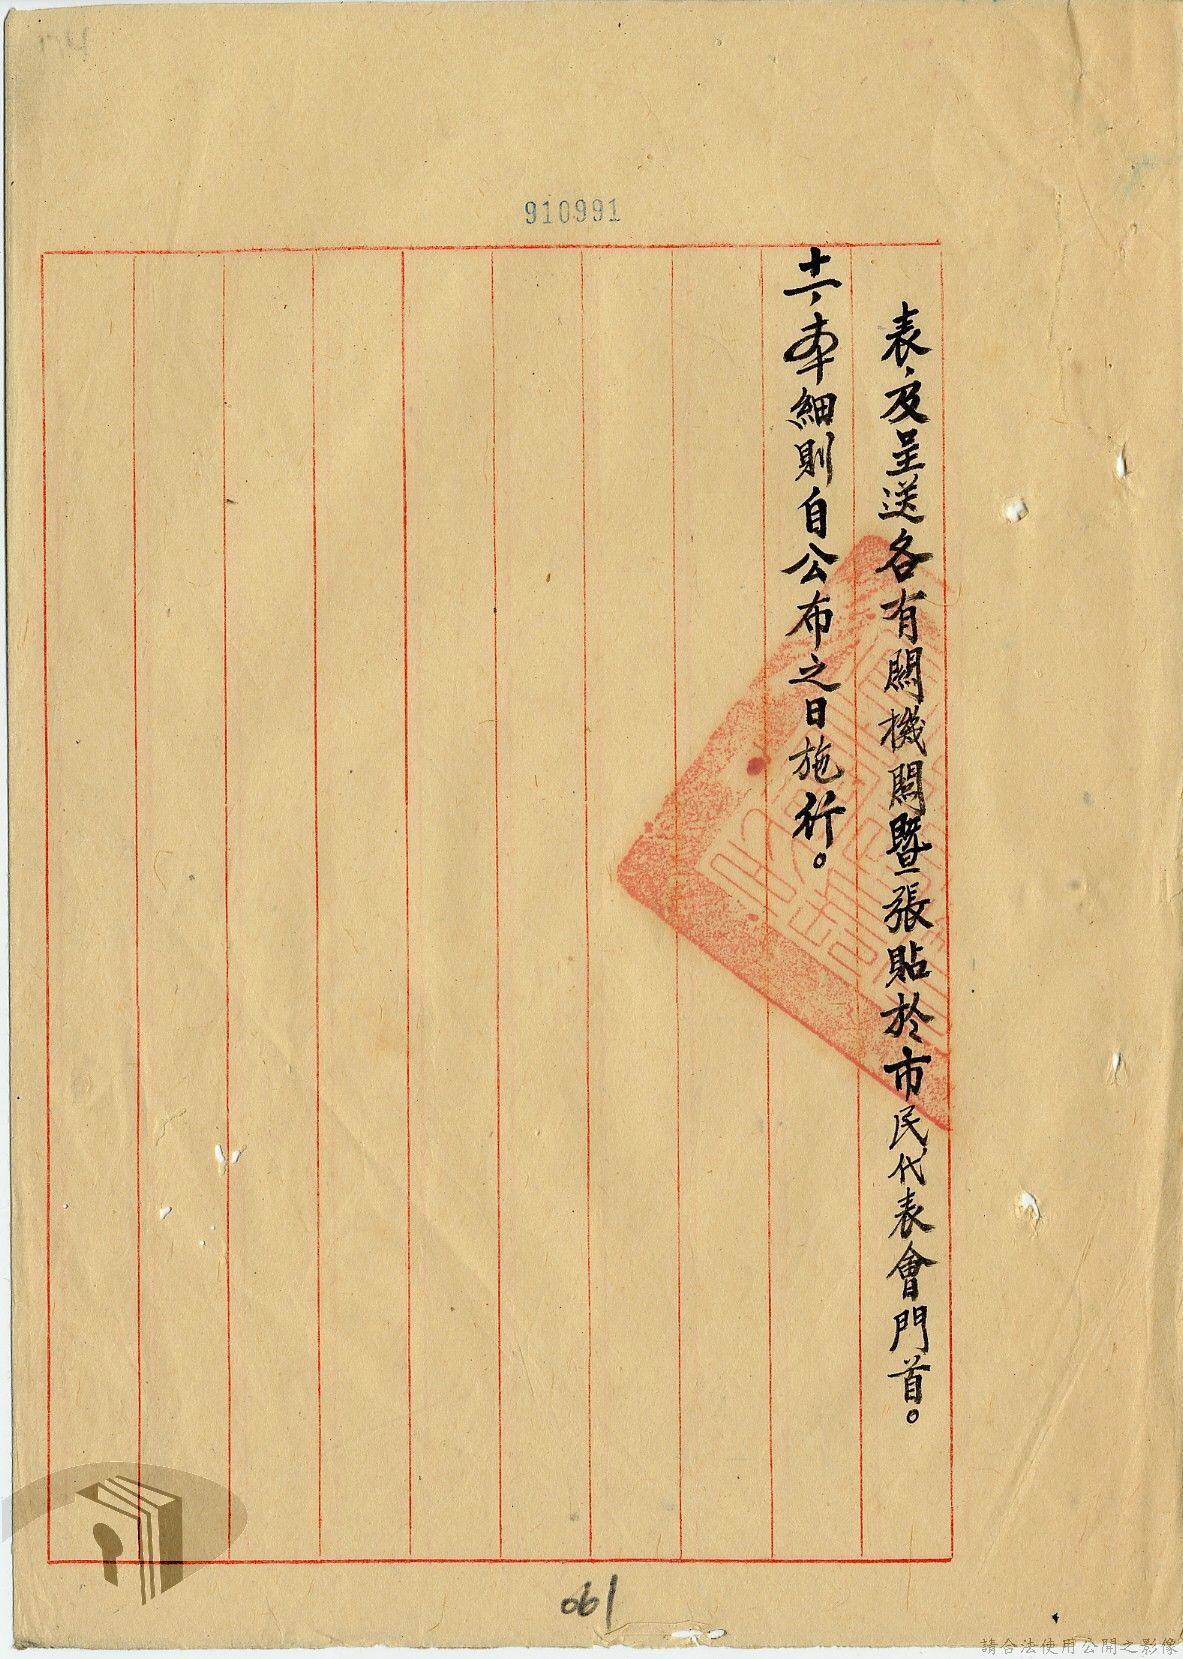 910991
表、及呈送各有關機關暨張貼於市民代表會門首。
十一、本細則自公布之日施行。
190
請合法使用公開之影像